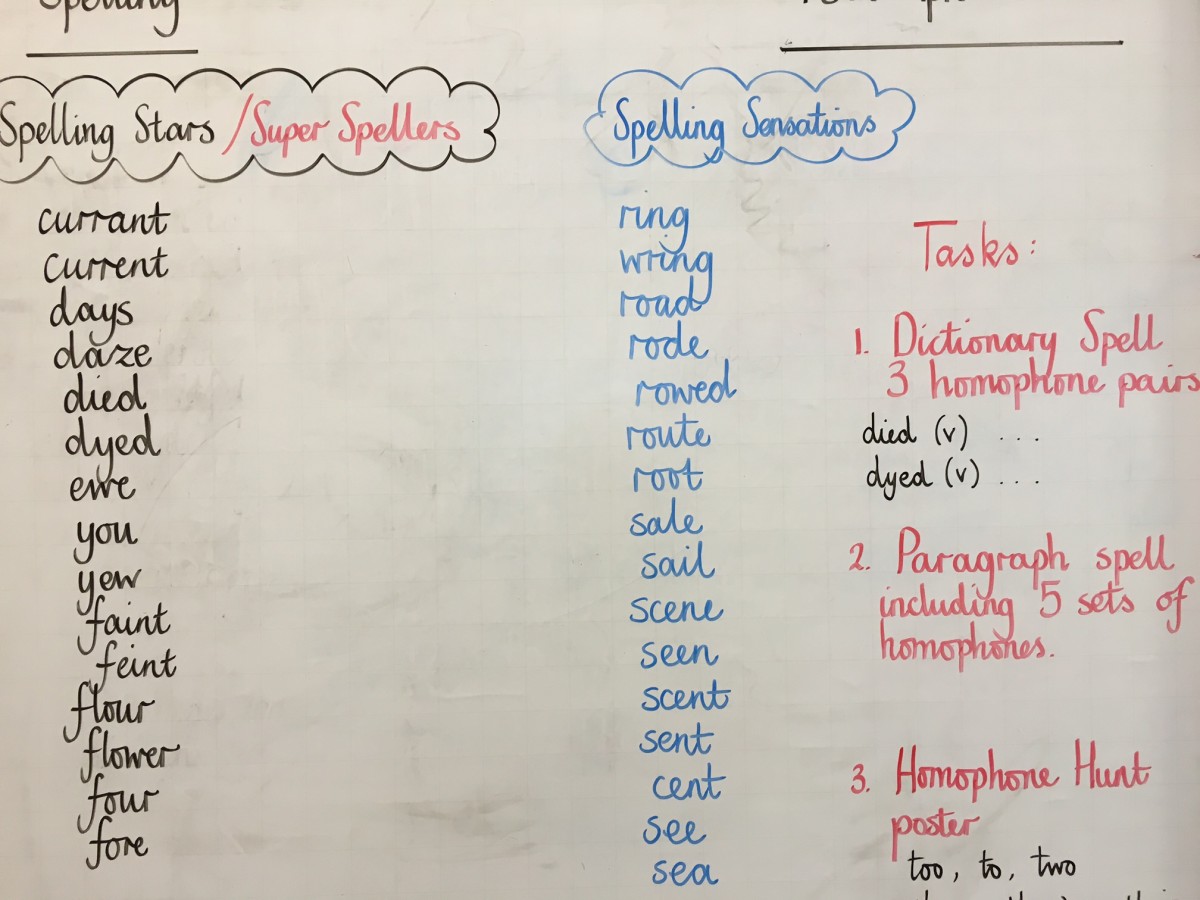 Spelling
Spelling Stars / Super Spellers
currant
current
days
daze
died
dyed
ewe
you
yew
faint
feint
flour
flower
four
fore
Spelling Sensations
ring
wring
road
rode
rowed
route
root
sale
sail
scene
seen
scent
sent
cent
see
sea
Tasks:
1. Dictionary Spell
3 homophone pairs
died (v) ...
dyed (v) ...
2. Paragraph spell
including 5 sets of
homophones.
3. Homophone Hunt
poster
too, to, two